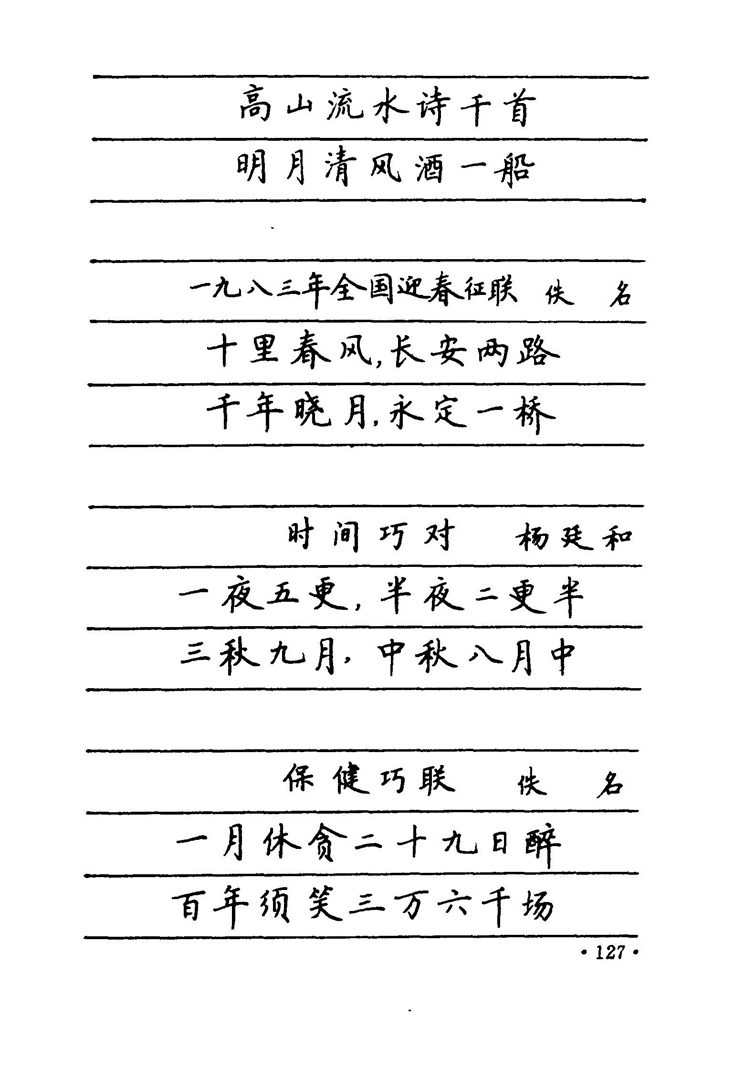 高山流水诗千首
明月清风酒一船
一九八三年全国迎春征联 佚 名
十里春风,长安两路
千年晓月,永定一桥
时间巧对 杨廷和
一夜五更,半夜二更半
三秋九月,中秋八月中
保健巧联 佚 名
一月休贪二十九日醉
百年须笑三万六千场
·127·